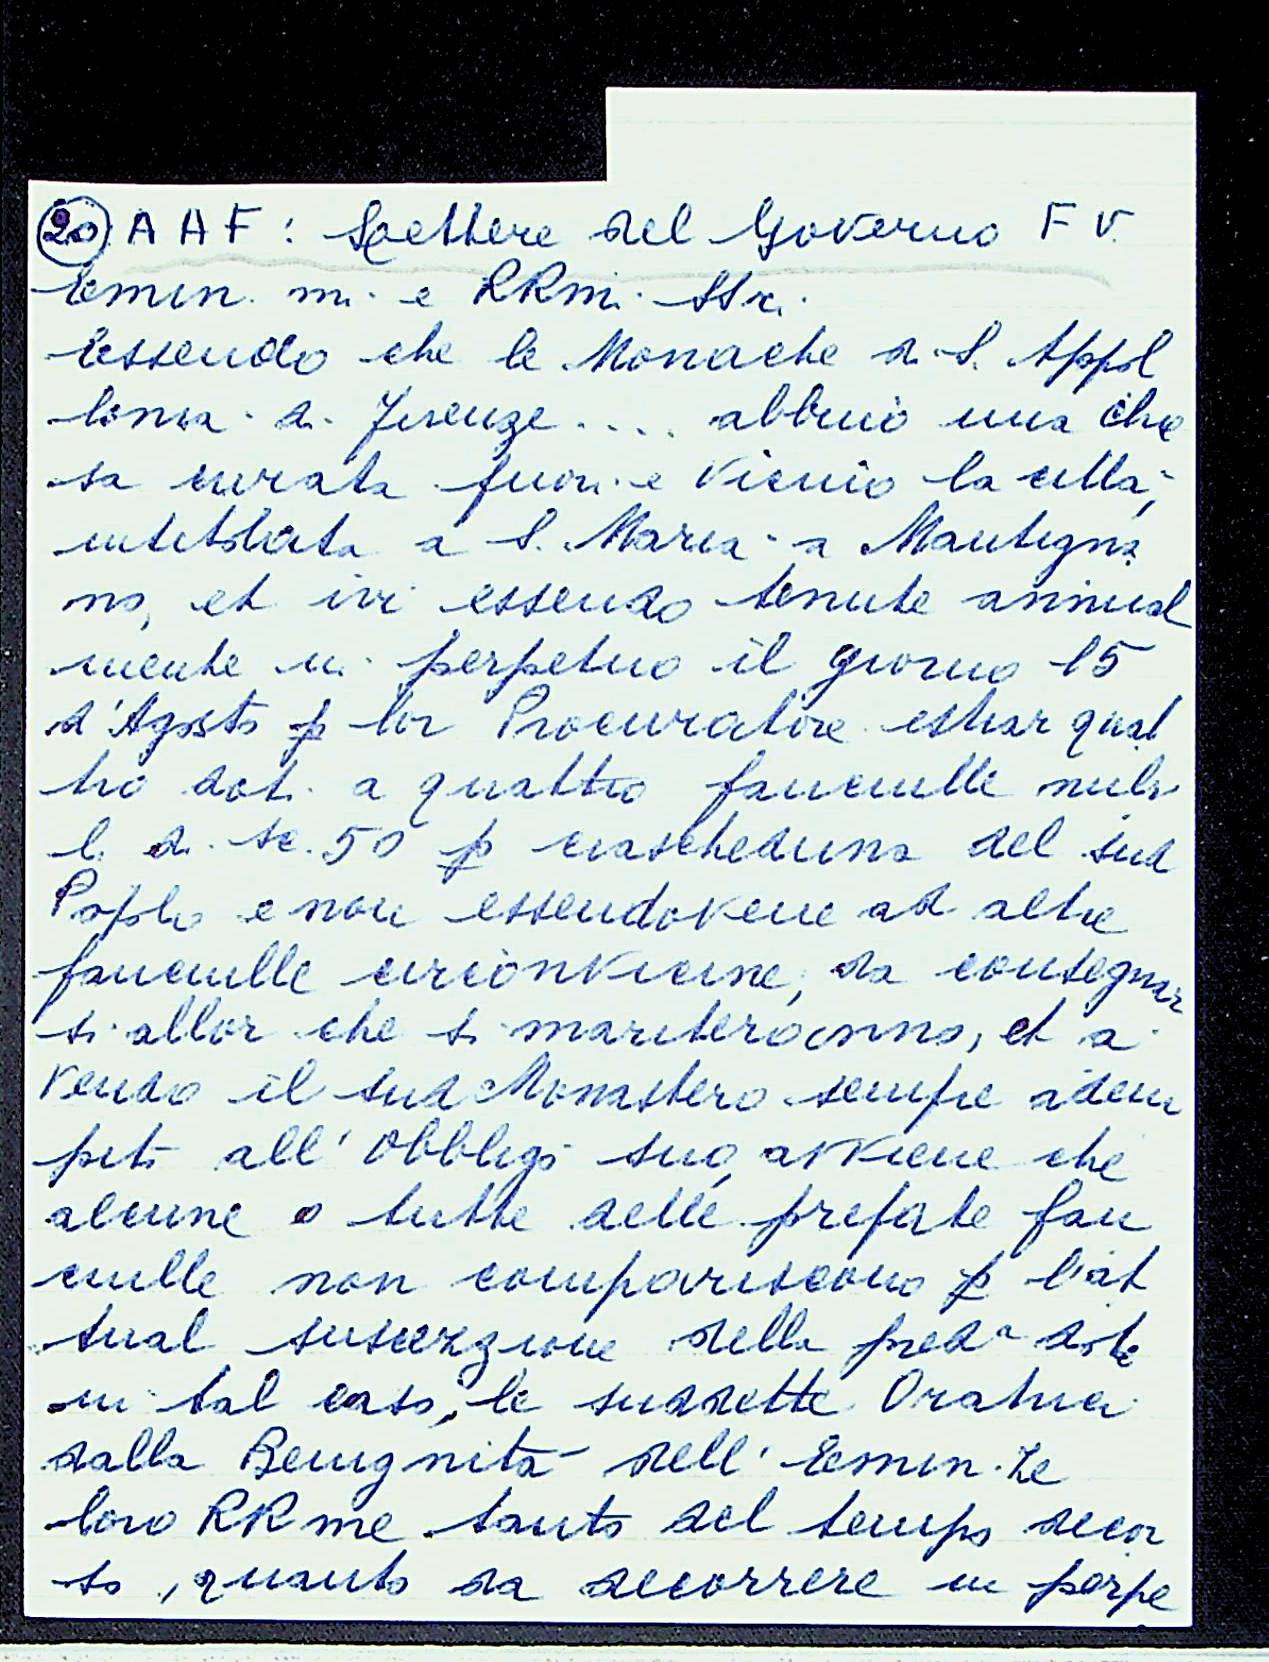 20 A A F: Lettere del Governo F V.
Emin. mi. e RRmi. SSri.
Essendo che le Monache di S. Appol
lonia di Firenze .... abbino una Chie
sa curata fuori e vicino la città,
intitolata a S. Maria a Mantigna
no, et ivi essendo tenute annual
mente in perpetuo il giorno 15
d'Agosto p lor Procuratore estrar quat
tro doti a quattro fanciulle nubi
li di sc. 50 p ciascheduna del sud
Popolo e non essendovene ad altre
fanciulle circonvicine, da consegnar
si allor che si mariteranno, et a
vendo il sud Monastero sempre adem
pito all' Obbligo suo, avviene che
alcune o tutte delle prefate fan
ciulle non compariscono p l'at
tual suscezzione della pred.a dote
in tal caso, le suddette Oratrici
dalla Benignità dell' Emin.ze
loro RRme tanto del tempo decor
so, quanto da decorrere in perpe